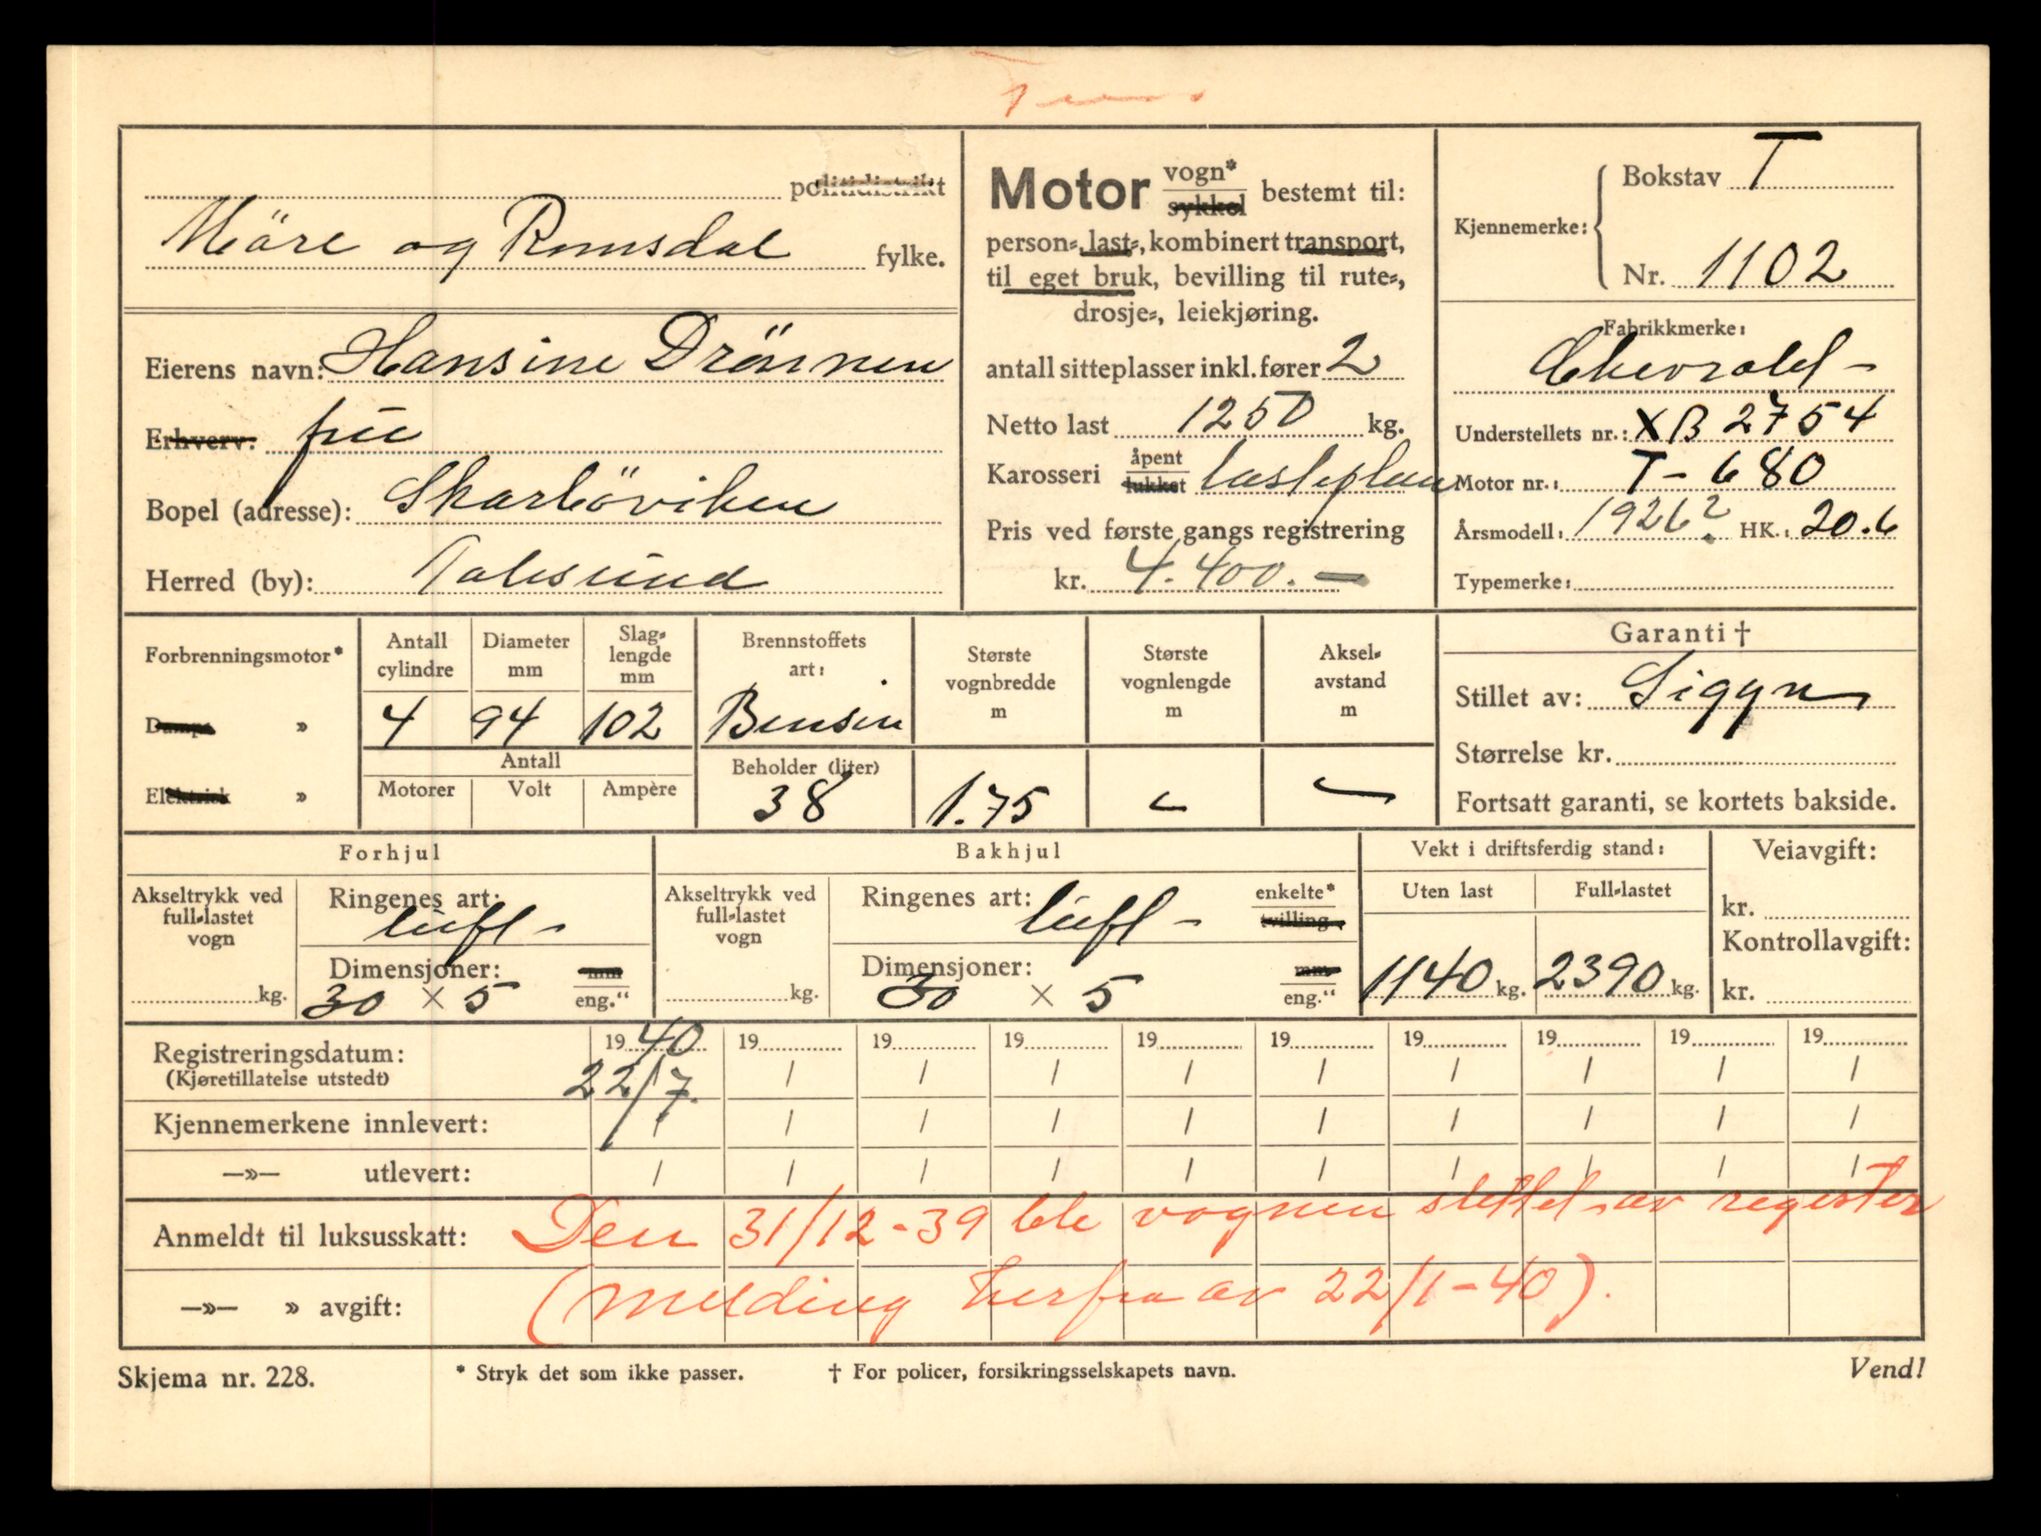 politidistrikt
Möre og Romsdal fylke.
Eierens navn: Hansine Drönnen
Erhverv: frü
Bopel (adresse): Skarböviken
Herred (by): Aalesund
Motor vogn* sykkel bestemt til:
person-, last-, kombinert transport,
til eget bruk, bevilling til rute-,
drosje-, leiekjøring.
antall sitteplasser inkl. fører 2
Netto last 1250 kg.
Karosseri åpent lukket lasteplan
Pris ved første gangs registrering
kr. 4.400.—
Kjennemerke: Bokstav T
Nr. 1102
Fabrikkmerke:
Chevrolet
Understellets nr.: XB 2754
Motor nr.: T-680
Årsmodell: 1926? HK.: 20.6
Typemerke:
Forbrenningsmotor*
Damps »
Elektrisk »
Antall cylindre 4
Diameter mm 94
Slaglengde mm 102
Antall
Motorer Volt Ampère
Brennstoffets art: Bensin
Beholder (liter) 38
Største vognbredde m 1.75
Største vognlengde m -
Akselavstand m -
Garanti †
Stillet av: Sigyn
Størrelse kr.
Fortsatt garanti, se kortets bakside.
Forhjul
Akseltrykk ved full-lastet vogn kg.
Ringenes art: lüft -
Dimensjoner: 30 × 5 mm eng."
Bakhjul
Akseltrykk ved full-lastet vogn kg.
Ringenes art: lüft - enkelte* tvilling
Dimensjoner: 30 × 5 mm eng."
Vekt i driftsferdig stand:
Uten last 1140 kg.
Full-lastet 2390 kg.
Veiavgift:
kr.
Kontrollavgift:
kr.
1940 19 19 19 19 19 19 19 19 19
Registreringsdatum: 22/7. / / / / / / / / /
(Kjøretillatelse utstedt)
Kjennemerkene innlevert: / / / / / / / / / /
—»— utlevert: / / / / / / / / / /
Anmeldt til luksusskatt: Den 31/12-39 ble vognen slettet av register
—»— » avgift: (melding herfra av 22/1-40).
Skjema nr. 228. * Stryk det som ikke passer. † For policer, forsikringsselskapets navn. Vend!